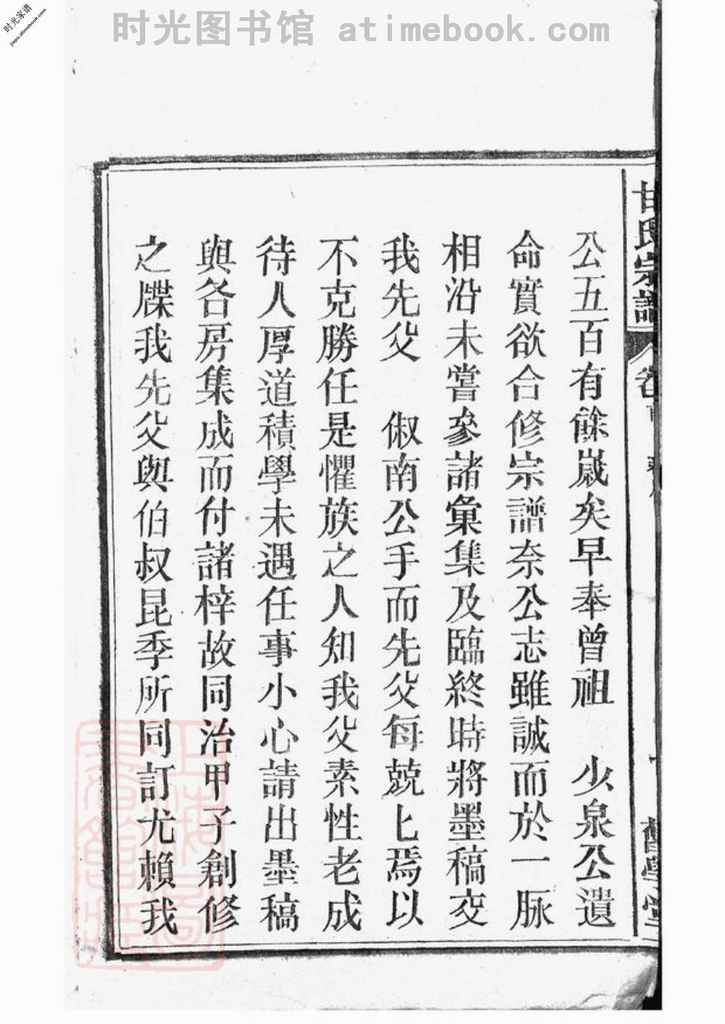 时光图书馆 atimebook.com
时光家谱
甘氏宗譜 卷
舊學堂
公五百有餘嵗矣早奉曾祖 少泉公遺
命實欲合修宗譜奈公志雖誠而於一脉
相沿未嘗參諸彙集及臨終時將墨稿交
我先父 俶南公手而先父每兢匕焉以
不克勝任是懼族之人知我父素性老成
待人厚道積學未遇任事小心請出墨稿
與各房集成而付諸梓故同治甲子創修
之牒我先父與伯叔昆季所同訂尤賴我